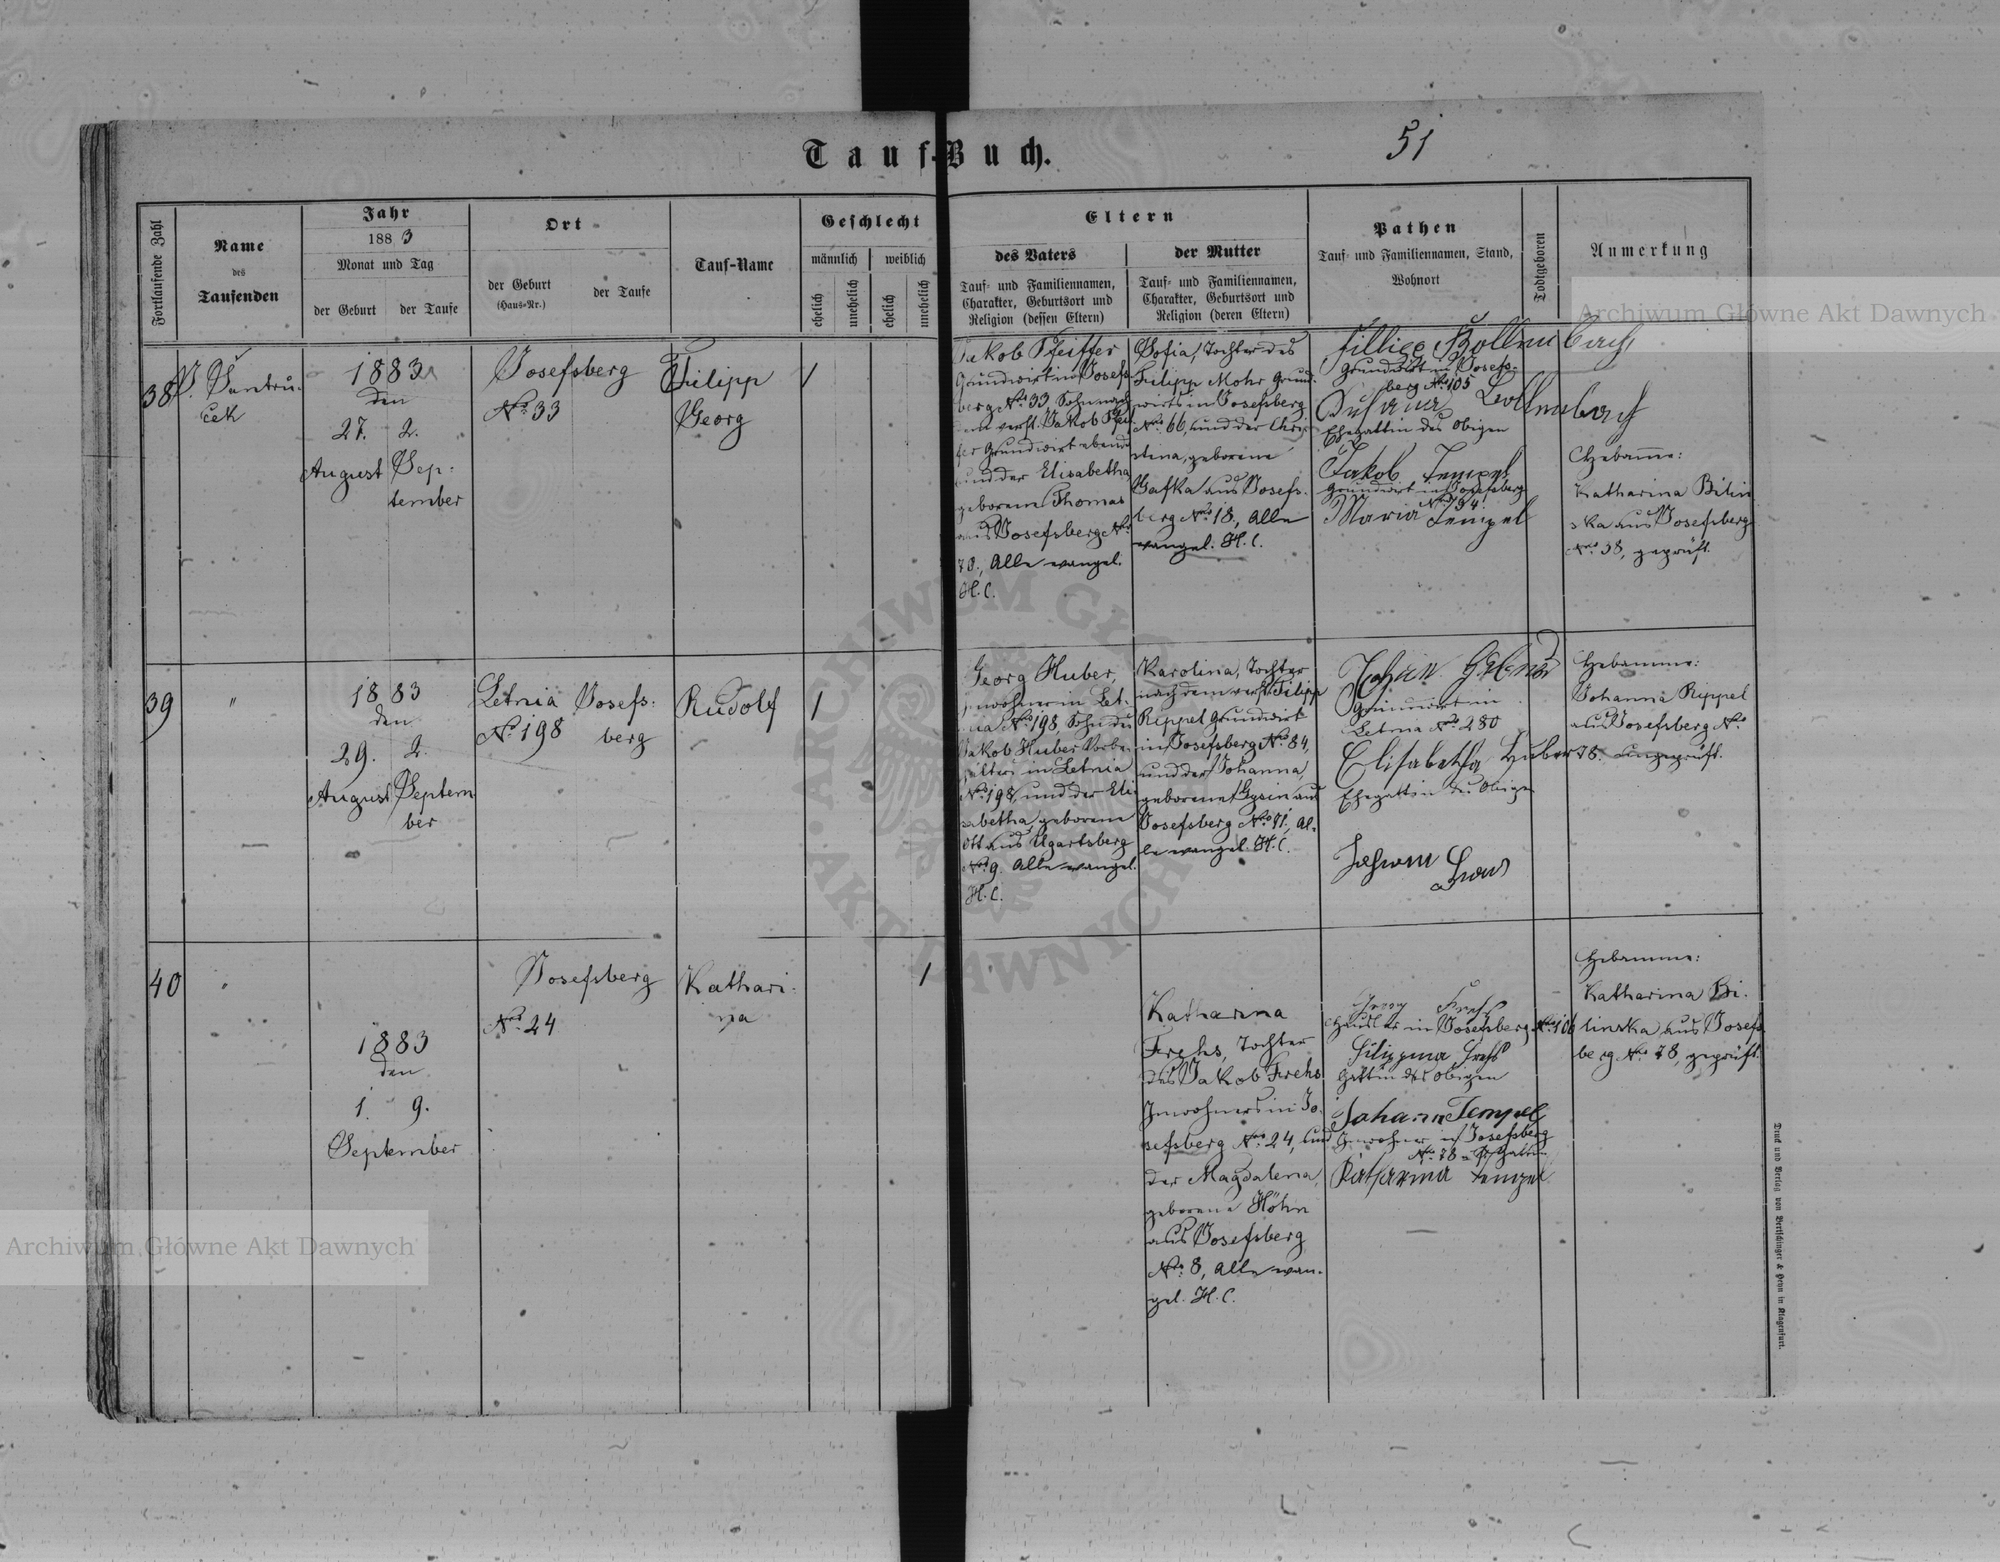 Tauf-Buch.
51
Fortlaufende Zahl
Name
des
Taufenden
Jahr
1883
Monat und Tag
der Geburt
der Taufe
Ort
der Geburt
(Haus-Nr.)
der Taufe
Tauf-Name
Geschlecht
männlich
weiblich
ehelich
unehelich
ehelich
unehelich
Eltern
des Vaters
Tauf- und Familiennamen,
Charakter, Geburtsort und
Religion (dessen Eltern)
der Mutter
Tauf- und Familiennamen,
Charakter, Geburtsort und
Religion (deren Eltern)
Pathen
Tauf- und Familiennamen, Stand,
Wohnort
Todtgeboren
Anmerkung
38
1883
den
27. 2.
August Sep-
tember
Josefsberg
No. 33
Filipp
Georg
1
Jakob Pfeiffer
Grundwirt in Josefs
berg No. 33 Sohn nach
dem verst. Jakob Pfeif
fer Grundwirt ebenda
und der Elisabetha
geborene Thomas
aus Josefsberg No.
78., Alle evangel.
H. C.
Sofia, Tochter des
Filipp Mohr Grund-
wirts in Josefsberg
No. 66, und der Chri-
stina, geborene
Gafka aus Josefs-
berg No. 18, Alle
evangel. H. C.
Grundwirt in Josefs-
berg No. 105
Ehegattin des Obigen
Jakob Tempel
Grundwirt in Josefsberg
Maria Tempel
Hebamme:
Katharina Bilin
ska aus Josefsberg
No. 38, geprüft.
39
"
1883
den
29. 2.
August Septem
ber
Letnia Josefs-
No. 198 berg
Rudolf
1
Georg Huber,
Inwohner in Let-
nia No. 198, Sohn des
Jakob Huber
in Letnia
No. 198, und der Eli
sabetha geborene
Ott aus Ugartsberg
No. 9. Alle evangel.
H. C.
Karolina, Tochter
nach dem verst. Filipp
Rippel Grundwirt
in Josefsberg No. 84,
und der Johanna,
geborene Gysin aus
Josefsberg No. 71, Al-
le evangel. H. C.
Letnia No. 280
Elisabetha Huber
Ehegattin des Obigen
Hebamme:
Johanna Rippel
aus Josefsberg No.
78. ungeprüft.
40
"
1883
den
1. 9.
September
Josefsberg
No. 24
Kathari-
na
1
Katharina
Frehs, Tochter
des Jakob Frehs
Inwohners in Jo-
sefsberg No. 24, und
der Magdalena,
geborene Höhn
aus Josefsberg
No. 8, Alle evan-
gel. H. C.
Häusler in Josefsberg No. 106
Filippina Frehs
Gattin des Obigen
Johann Tempel
Inwohner in Josefsberg
Katharina Tempel
Hebamme:
Katharina Bi-
linska aus Josefs
berg No. 78, geprüft.
Druck und Verlag von Bertschinger & Heyn in Klagenfurt.
Archiwum Główne Akt Dawnych
Archiwum Główne Akt Dawnych
ARCHIWUM GŁÓWNE AKT DAWNYCH